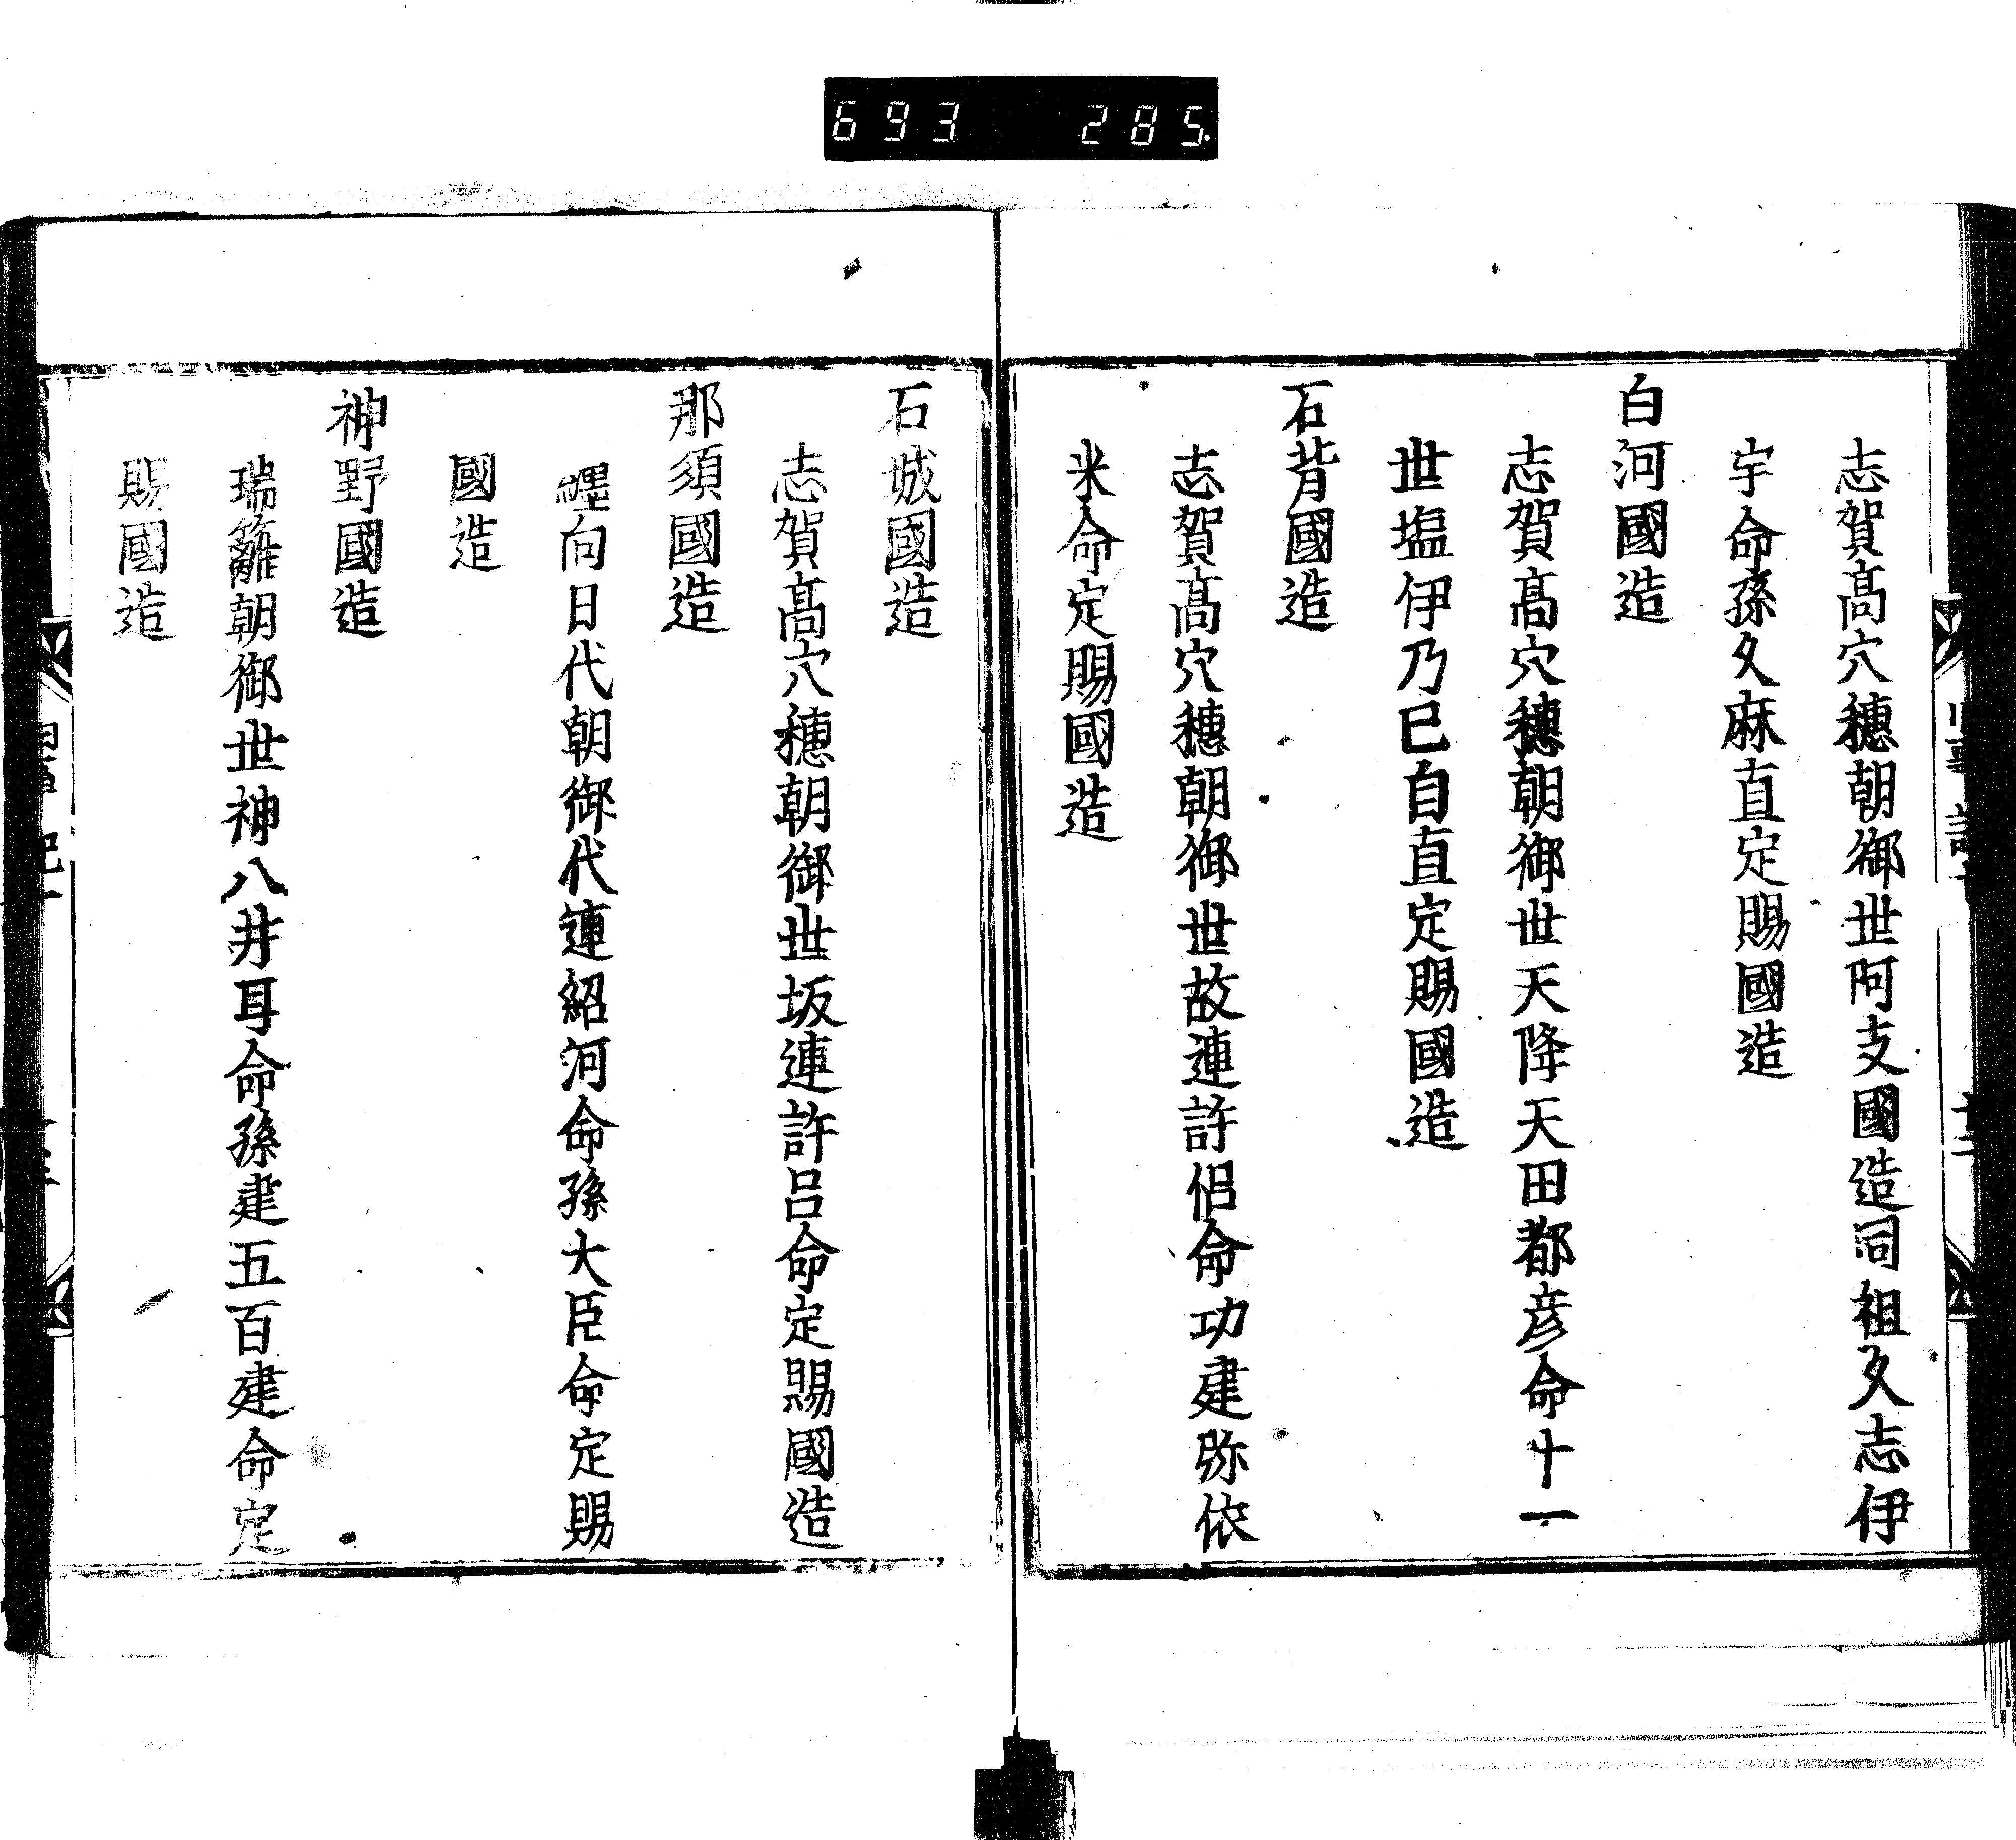 693 285.
志賀髙穴穗朝御世阿支國造同祖久志伊
宇命孫久麻直定賜國造
白河國造
志賀髙穴穗朝御世天降天田都彦命十一
世塩伊乃己自直定賜國造
石背國造
志賀髙穴穗朝御世故連許侶命功建弥依
米命定賜國造
石城國造
志賀髙穴穗朝御世坂連許呂命定賜國造
那須國造
纒向日代朝御代連紹河命孫大臣命定賜
國造
神野國造
瑞籬朝御世神八井耳命孫建五百建命定
賜國造